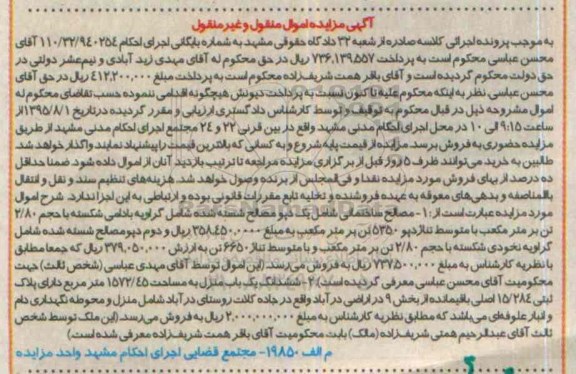 آگهی مزایده اموال منقول و غیر منقول
به موجب پرونده اجرائی کلاسه صادره از شعبه ۳۲ دادگاه حقوقی مشهد به شماره بایگانی اجرای احکام ۱۱۰/۳۲/۹۴۰۲۵۴ آقای
محسن عباسی محکوم است به پرداخت ۷۳۶,۱۳۹,۵۵۷ ریال در حق محکوم له آقای مهدی زید آبادی و نیم عشر دولتی در
حق دولت محکوم گردیده است و آقای باقر همت شریف زاده محکوم است به پرداخت مبلغ ۴۱۲,۲۰۰,۰۰۰ ریال در حق آقای
محسن عباسی نظر به اینکه محکوم علیه تا کنون نسبت به پرداخت دیونش هیچگونه اقدامی ننموده حسب تقاضای محکوم له
اموال مشروحه ذیل در قبال محکوم به توقیف و توسط کارشناس دادگستری ارزیابی و مقرر گردیده در تاریخ ۱۳۹۵/۸/۱ از
ساعت ۹:۱۵ الی ۱۰ در محل اجرای احکام مدنی مشهد واقع در بین قرنی ۲۲ و ۲۴ مجتمع اجرای احکام مدنی مشهد از طریق
مزایده حضوری به فروش برسد. مزایده از قیمت پایه شروع و به کسانی که بالاترین قیمت را پیشنهاد نمایند واگذار خواهد شد.
طالبین به خرید می توانند ظرف ۵ روز قبل از برگزاری مزایده مراجعه تا ترتیب بازدید آنان از اموال داده شود. ضمنا حداقل
ده درصد از بهای فروش مورد مزایده نقدا و فی المجلس از برنده وصول خواهد شد. هزینه های تنظیم سند و نقل و انتقال
بالمناصفه و بدهی های معوقه به عهده فروشنده و تخلیه تابع مقررات قانونی بوده و ارتباطی به این اجرا ندارد. شرح اموال
مورد مزایده عبارت است از: ۱- مصالح ساختمانی شامل یک دپو مصالح شسته شده شامل گراویه بادامی شکسته با حجم ۲/۸۰
تن بر متر مکعب با متوسط تناژ دپو ۵۳۵۰ تن بر متر مکعب به مبلغ ۳۵۸,۴۵۰,۰۰۰ ریال و دوم دپو مصالح شسته شده شامل
گراویه نخودی شکسته با حجم ۲/۸۰ تن بر متر مکعب و با متوسط تناژ ۶۶۵۰ تن به ارزش ۳۷۹,۰۵۰,۰۰۰ ریال که جمعا مطابق
با نظریه کارشناس به مبلغ ۷۳۷,۵۰۰,۰۰۰ ریال به فروش می رسد. (این اموال توسط آقای مهدی عباسی (شخص ثالث) جهت
محکومیت آقای محسن عباسی معرفی گردیده است) ۲- ششدانگ یک باب منزل به مساحت ۱۵۷۲/۴۵ متر مربع دارای پلاک
ثبتی ۱۵/۲۸۴ اصلی باقیمانده از بخش ۹ در اراضی در آباد واقع در جاده کلات روستای در آباد شامل منزل و محوطه نگهداری دام
و انبار علوفه ای می باشد که مطابق نظریه کارشناس به مبلغ ۲,۰۰۰,۰۰۰,۰۰۰ ریال به فروش می رسد. (این ملک توسط شخص
ثالث آقای عبدالرحیم همتی شریف زاده (مالک) بابت محکومیت آقای باقر همت شریف زاده معرفی شده است)
م الف ۱۹۸۵۰- مجتمع قضایی اجرای احکام مشهد واحد مزایده